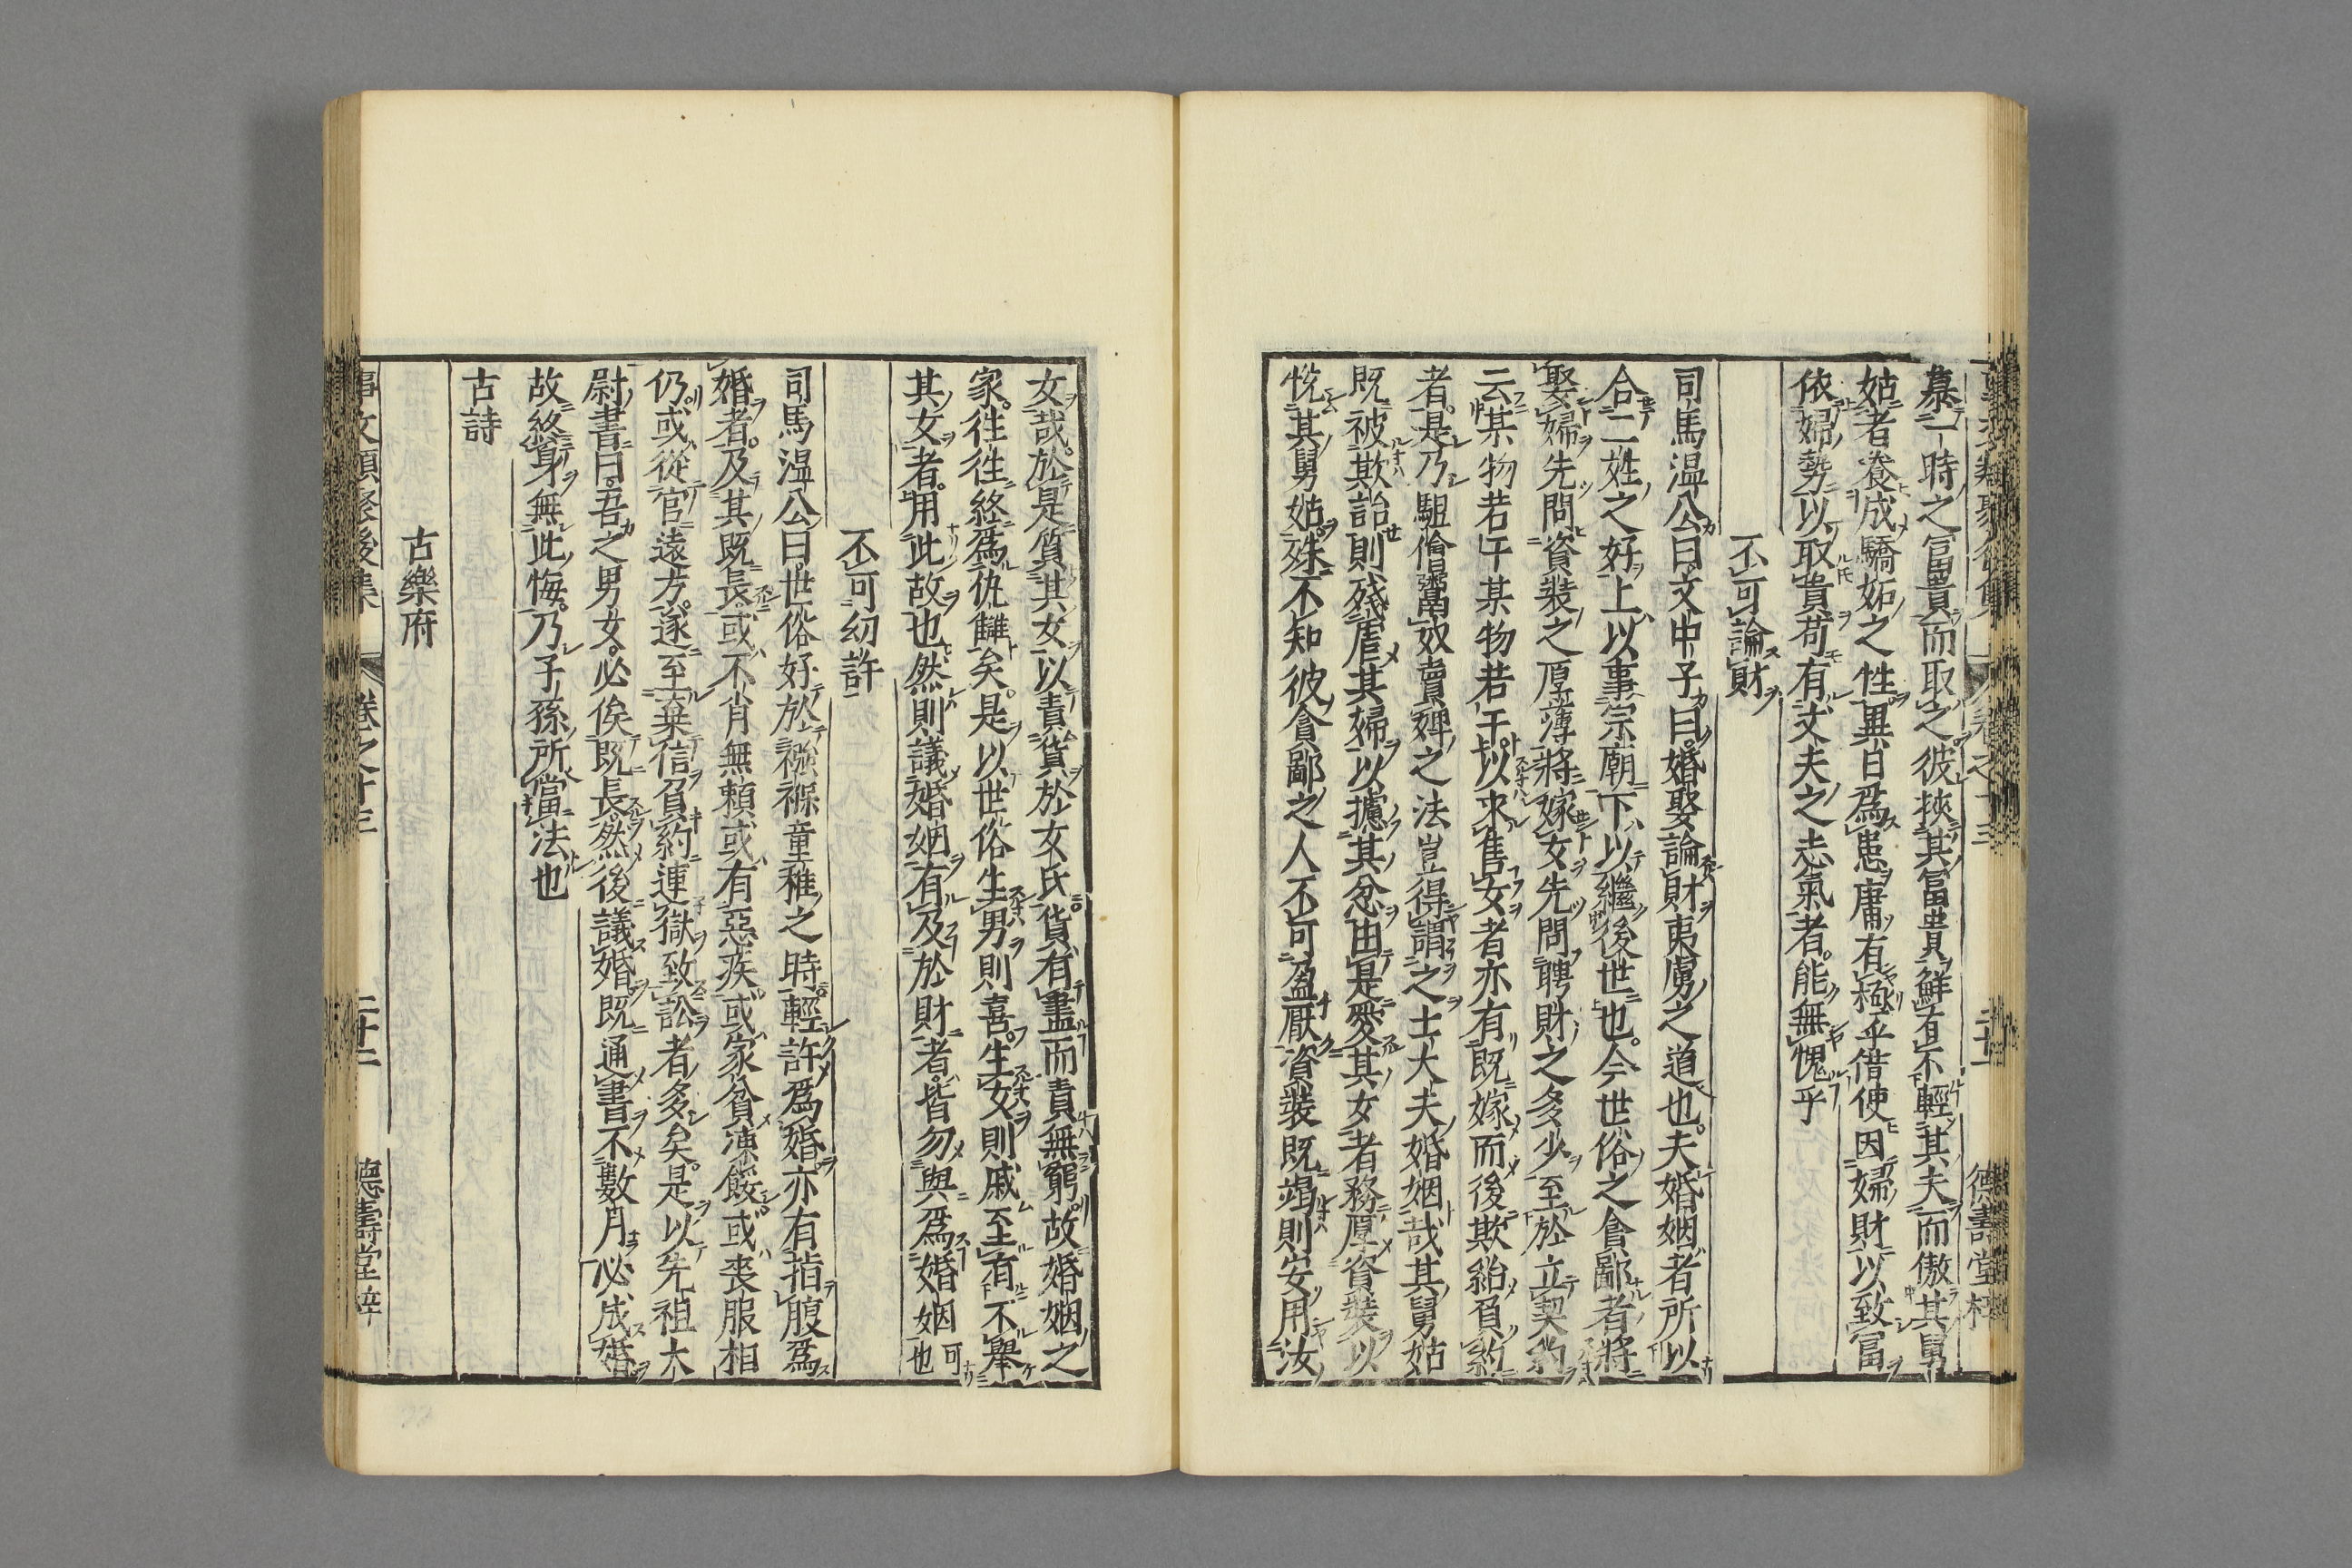 慕一時之冨貴而取之彼挾其冨貴鮮有不輕其夫而傲其舅
姑者養成驕妬之性異日爲患庸有極乎借使因婦財以致冨
依婦勢以取貴苟有丈夫之志氣者能無愧乎
不可論財
司馬温公曰文中子曰婚娶論財夷虜之道也夫婚姻者所以
合二姓之好上以事宗廟下以繼後世也今世俗之貪鄙者將
娶婦先問資裝之厚薄將嫁女先問聘財之多少至於立契約
云某物若干某物若干以求售女者亦有既嫁而後欺紿負約
者是乃駔儈鬻奴賣婢之法豈得謂之士大夫婚姻哉其舅姑
既被欺詒則殘虐其婦以攄其忿由是愛其女者務厚資裝以
恱其舅姑殊不知彼貪鄙之人不可盈厭資裝既竭則安用汝
女哉於是質其女以責貨於女氏貨有盡而責無窮故婚姻之
家往往終爲仇讎矣是以世俗生男則喜生女則戚至有不舉
其女者用此故也然則議婚姻有及於財者皆勿與爲婚姻可也
不可幼許
司馬温公曰世俗好於襁褓童稚之時輕許爲婚亦有指腹爲
婚者及其既長或不肖無頼或有惡疾或家貧凍餒或喪服相
仍或從官遠方遂至棄信負約連獄致訟者多矣是以先祖太
尉書曰吾之男女必俟既長然後議婚既通書不數月必成婚
故終身無此悔乃子孫所當法也
古詩
古樂府
事文類聚後集 卷之十三 二十二 德壽堂梓